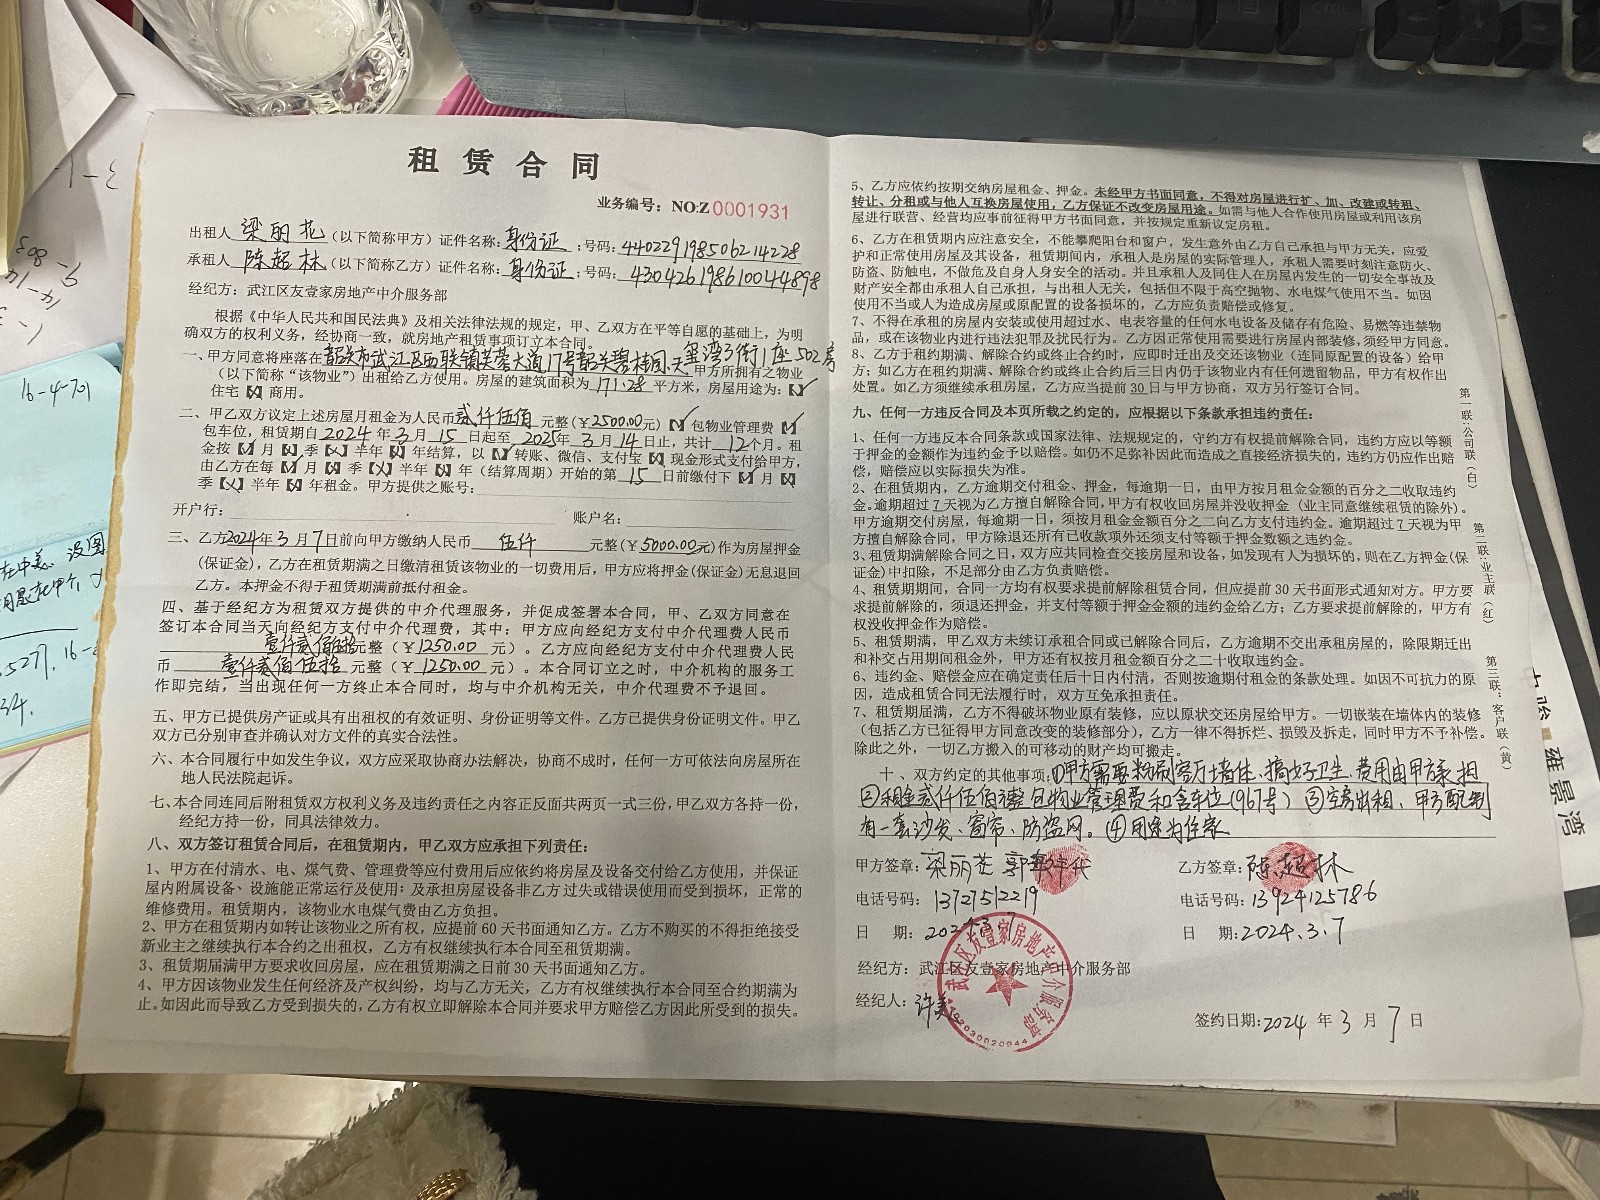 租赁合同
业务编号：NO:Z0001931
出租人 梁丽花 (以下简称甲方) 证件名称：身份证；号码：440229198506214228
承租人 陈超林 (以下简称乙方) 证件名称：身份证；号码：430426198610044898
经纪方：武江区友壹家房地产中介服务部
根据《中华人民共和国民法典》及相关法律法规的规定，甲、乙双方在平等自愿的基础上，为明
确双方的权利义务，经协商一致，就房地产租赁事项订立本合同。
一、甲方同意将座落在韶关市武江区西联镇芙蓉大道17号韶关碧桂园天玺湾3街1座502房 甲方所拥有之物业
(以下简称“该物业”) 出租给乙方使用。房屋的建筑面积为 171.28 平方米，房屋用途为：【✓】
住宅【✗】商用。
二、甲乙双方议定上述房屋月租金为人民币 贰仟伍佰 元整 (￥2500.00元)【✓】包物业管理费【✓】
包车位，租赁期自 2024 年 3 月 15 日起至 2025 年 3 月 14 日止，共计 12 个月。租
金按【✓】月【✗】季【✗】半年【✗】年结算，以【✓】转账、微信、支付宝【✗】现金形式支付给甲方，
由乙方在每【✓】月【✗】季【✗】半年【✗】年（结算周期）开始的第 15 日前缴付下【✓】月【✗】
季【✗】半年【✗】年租金。甲方提供之账号：
开户行： 账户名：
三、乙方2024年 3 月 7 日前向甲方缴纳人民币 伍仟 元整 (￥5000.00元) 作为房屋押金
(保证金)，乙方在租赁期满之日缴清租赁该物业的一切费用后，甲方应将押金(保证金)无息退回
乙方。本押金不得于租赁期满前抵付租金。
四、基于经纪方为租赁双方提供的中介代理服务，并促成签署本合同，甲、乙双方同意在
签订本合同当天向经纪方支付中介代理费，其中：甲方应向经纪方支付中介代理费人民币
壹仟贰佰伍拾元整 (￥1250.00 元) 。乙方应向经纪方支付中介代理费人民
币 壹仟贰佰伍拾 元整 (￥1250.00 元) 。本合同订立之时，中介机构的服务工
作即完结，当出现任何一方终止本合同时，均与中介机构无关，中介代理费不予退回。
五、甲方已提供房产证或具有出租权的有效证明、身份证明等文件。乙方已提供身份证明文件。甲乙
双方已分别审查并确认对方文件的真实合法性。
六、本合同履行中如发生争议，双方应采取协商办法解决，协商不成时，任何一方可依法向房屋所在
地人民法院起诉。
七、本合同连同后附租赁双方权利义务及违约责任之内容正反面共两页一式三份，甲乙双方各持一份，
经纪方持一份，同具法律效力。
八、双方签订租赁合同后，在租赁期内，甲乙双方应承担下列责任：
1、甲方在付清水、电、煤气费、管理费等应付费用后应依约将房屋及设备交付给乙方使用，并保证
屋内附属设备、设施能正常运行及使用；及承担房屋设备非乙方过失或错误使用而受到损坏，正常的
维修费用。租赁期内，该物业水电煤气费由乙方负担。
2、甲方在租赁期内如转让该物业之所有权，应提前 60 天书面通知乙方。乙方不购买的不得拒绝接受
新业主之继续执行本合约之出租权，乙方有权继续执行本合同至租赁期满。
3、租赁期届满甲方要求收回房屋，应在租赁期满之日前 30 天书面通知乙方。
4、甲方因该物业发生任何经济及产权纠纷，均与乙方无关，乙方有权继续执行本合同至合约期满为
止。如因此而导致乙方受到损失的，乙方有权立即解除本合同并要求甲方赔偿乙方因此所受到的损失。
5、乙方应依约按期交纳房屋租金、押金。未经甲方书面同意，不得对房屋进行扩、加、改建或转租、
转让、分租或与他人互换房屋使用，乙方保证不改变房屋用途。如需与他人合作使用房屋或利用该房
屋进行联营、经营均应事前征得甲方书面同意，并按规定重新议定房租。
6、乙方在租赁期内应注意安全，不能攀爬阳台和窗户，发生意外由乙方自己承担与甲方无关，应爱
护和正常使用房屋及其设备，租赁期间内，承租人是房屋的实际管理人，承租人需要时刻注意防火、
防盗、防触电，不做危及自身人身安全的活动。并且承租人及同住人在房屋内发生的一切安全事故及
财产安全都由承租人自己承担，与出租人无关，包括但不限于高空抛物、水电煤气使用不当。如因
使用不当或人为造成房屋或原配置的设备损坏的，乙方应负责赔偿或修复。
7、不得在承租的房屋内安装或使用超过水、电表容量的任何水电设备及储存有危险、易燃等违禁物
品，或在该物业内进行违法犯罪及扰民行为。乙方因正常使用需要进行房屋内部装修，须经甲方同意。
8、乙方于租约期满、解除合约或终止合约时，应即时迁出及交还该物业（连同原配置的设备）给甲
方；如乙方在租约期满、解除合约或终止合约后三日内仍于该物业内有任何遗留物品，甲方有权作出
处置。如乙方须继续承租房屋，乙方应当提前 30 日与甲方协商，双方另行签订合同。
九、任何一方违反合同及本页所载之约定的，应根据以下条款承担违约责任：
1、任何一方违反本合同条款或国家法律、法规规定的，守约方有权提前解除合同，违约方应以等额
于押金的金额作为违约金予以赔偿。如仍不足弥补因此而造成之直接经济损失的，违约方仍应作出赔
偿，赔偿应以实际损失为准。
2、在租赁期内，乙方逾期交付租金、押金，每逾期一日，由甲方按月租金金额的百分之二收取违约
金。逾期超过 7 天视为乙方擅自解除合同，甲方有权收回房屋并没收押金（业主同意继续租赁的除外）。
甲方逾期交付房屋，每逾期一日，须按月租金金额百分之二向乙方支付违约金。逾期超过 7 天视为甲
方擅自解除合同，甲方除退还所有已收款项外还须支付等额于押金数额之违约金。
3、租赁期满解除合同之日，双方应共同检查交接房屋和设备，如发现有人为损坏的，则在乙方押金(保
证金)中扣除，不足部分由乙方负责赔偿。
4、租赁期期间，合同一方均有权要求提前解除租赁合同，但应提前 30 天书面形式通知对方。甲方要
求提前解除的，须退还押金，并支付等额于押金金额的违约金给乙方；乙方要求提前解除的，甲方有
权没收押金作为赔偿。
5、租赁期满，甲乙双方未续订承租合同或已解除合同后，乙方逾期不交出承租房屋的，除限期迁出
和补交占用期间租金外，甲方还有权按月租金额百分之二十收取违约金。
6、违约金、赔偿金应在确定责任后十日内付清，否则按逾期付租金的条款处理。如因不可抗力的原
因，造成租赁合同无法履行时，双方互免承担责任。
7、租赁期届满，乙方不得破坏物业原有装修，应以原状交还房屋给甲方。一切嵌装在墙体内的装修
（包括乙方已征得甲方同意改变的装修部分），乙方一律不得拆烂、损毁及拆走，同时甲方不予补偿。
除此之外，一切乙方搬入的可移动的财产均可搬走。
十、双方约定的其他事项：①甲方需要粉刷客厅墙体、搞好卫生、费用由甲方承担
②租金贰仟伍佰元整包物业管理费和含车位(967号) ③空房出租、甲方配制
有一套沙发、窗帘、防盗网。④用途为住家
甲方签章：梁丽花 郭 代
乙方签章：陈超林
电话号码：13727512219
电话号码：13924125786
日 期：2024.3.7
日 期：2024.3.7
经纪方：武江区友壹家房地产中介服务部
经纪人：许美
签约日期：2024 年 3 月 7 日
武江区友壹家房地产中介服务部
第一联：公司联（白）
第二联：业主联（红）
第三联：客户联（黄）
16-4-701
雍景湾